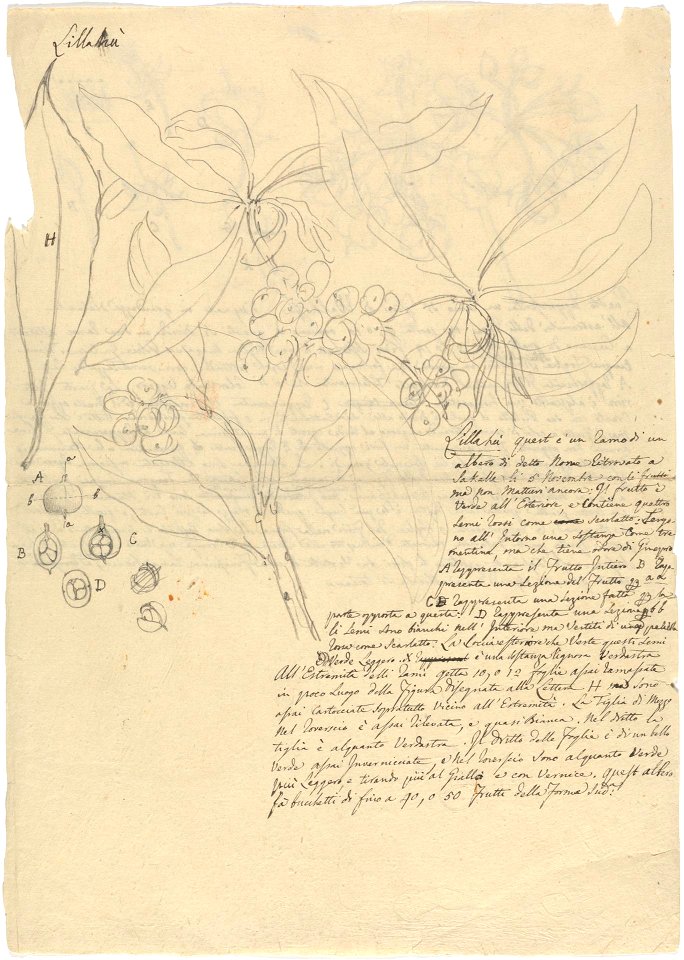 Lillahù
H
a
A
b b
a
B
C
D
Lillahù quest è un ramo di un
albero di detto Nome Ritrovato a
Sakalla li 5 Novembre con li frutti
ma non Matturi ancora: Il frutto è
Verde all'Esteriore, e Contiene quattro
Semi rossi come Scarlatto. Tengo-
no all'Interno una sostanza Come tre-
mentina, ma che tiene odore di Ginepro
A Rappresenta il Frutto Intiero. B Rap-
presenta una Sezione del Frutto a a
C Rappresenta una Sezione fatta la
parte opposta a questa. D Rappresenta una Sezione b b
li Semi sono bianchi nell'Interiore ma Vestiti di una
come Scarlatto. La esteriore che Veste questi Semi
Verde Leggero. X è una sostanza lignosa Verdastra
All'Estremità delli rami getta 10, o 12 foglie assai ramassate
in poco Luogo della Figura disegnata alla Lettera H sono
assai Cartocciate Sopratutto Vicino all'Estremità. La Tiglia di Mezzo
Nel roverscio è assai rilevata, e quasi Bianca. Nel dritto la
tiglia è alquanto Verdastra. Il Dritto della foglia è di un bello
Verde assai Inverniciate, e Nel roverscio sono alquanto Verde
più Leggero e tirando più al Giallo e con Vernice. Quest albero
fà bucchetti di fino a 40, o 50 Frutti della Forma Sud.ª